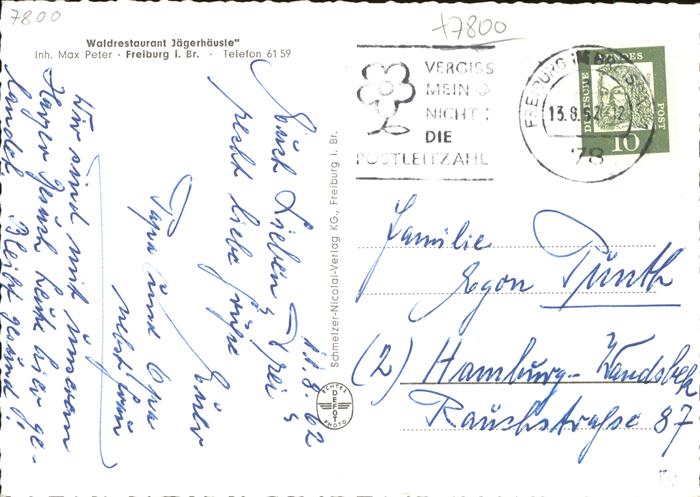 7800
+7800
„Waldrestaurant Jägerhäusle"
Inh. Max Peter · Freiburg i. Br. · Telefon 61 59
VERGISS
MEIN
NICHT
DIE
POSTLEITZAHL
FREIBURG
13.8.62-12
78
DEUTSCHE BUNDESPOST
10
Schmelzer-Nicolai-Verlag KG., Freiburg i. Br.
DEFOT
PHOTO
11.8.62
Euch Lieben Drei
recht liebe Grüße
Euer
Papa und Opa
nebst Frau
Wir sind mit unserm
Hagen Gusch heute hier ge-
landet. Bleibt gesund!
Familie
Egon Tünth
(2) Hamburg-Wandsbek
Rauchstraße 87